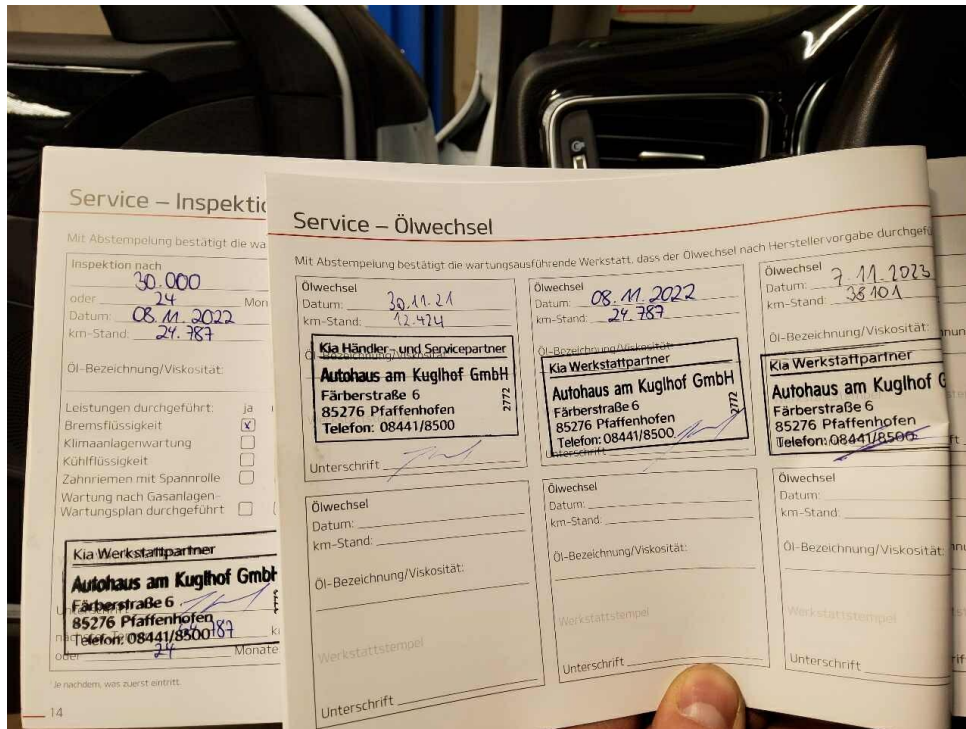 Service – Inspektio
Mit Abstempelung bestätigt die wa
Inspektion nach
30.000
oder 24 Mon
Datum: 08.11.2022
km-Stand: 24.787
Öl-Bezeichnung/Viskosität:
Leistungen durchgeführt: ja
Bremsflüssigkeit x
Klimaanlagenwartung
Kühlflüssigkeit
Zahnriemen mit Spannrolle
Wartung nach Gasanlagen-
Wartungsplan durchgeführt
Kia Werkstattpartner
Autohaus am Kuglhof GmbH
Färberstraße 6
85276 Pfaffenhofen
Telefon: 08441/8500
787
oder 24 Monate
Je nachdem, was zuerst eintritt.
14
Service – Ölwechsel
Mit Abstempelung bestätigt die wartungsausführende Werkstatt, dass der Ölwechsel nach Herstellervorgabe durchgefü
Ölwechsel
Datum: 30.11.21
km-Stand: 12.424
Öl-Bezeichnung/Viskosität:
Kia Händler- und Servicepartner
Autohaus am Kuglhof GmbH
Färberstraße 6
85276 Pfaffenhofen
Telefon: 08441/8500
2772
Unterschrift
Ölwechsel
Datum: 08.11.2022
km-Stand: 24.787
Öl-Bezeichnung/Viskosität:
Kia Werkstattpartner
Autohaus am Kuglhof GmbH
Färberstraße 6
85276 Pfaffenhofen
Telefon: 08441/8500
2772
Unterschrift
Ölwechsel
Datum: 7.11.2023
km-Stand: 38101
Öl-Bezeichnung/Viskosität:
Kia Werkstattpartner
Autohaus am Kuglhof G
Färberstraße 6
85276 Pfaffenhofen
Telefon: 08441/8500
Ölwechsel
Datum:
km-Stand:
Öl-Bezeichnung/Viskosität:
Werkstattstempel
Unterschrift
Ölwechsel
Datum:
km-Stand:
Öl-Bezeichnung/Viskosität:
Werkstattstempel
Unterschrift
Ölwechsel
Datum:
km-Stand:
Öl-Bezeichnung/Viskosität:
Werkstattstempel
Unterschrift